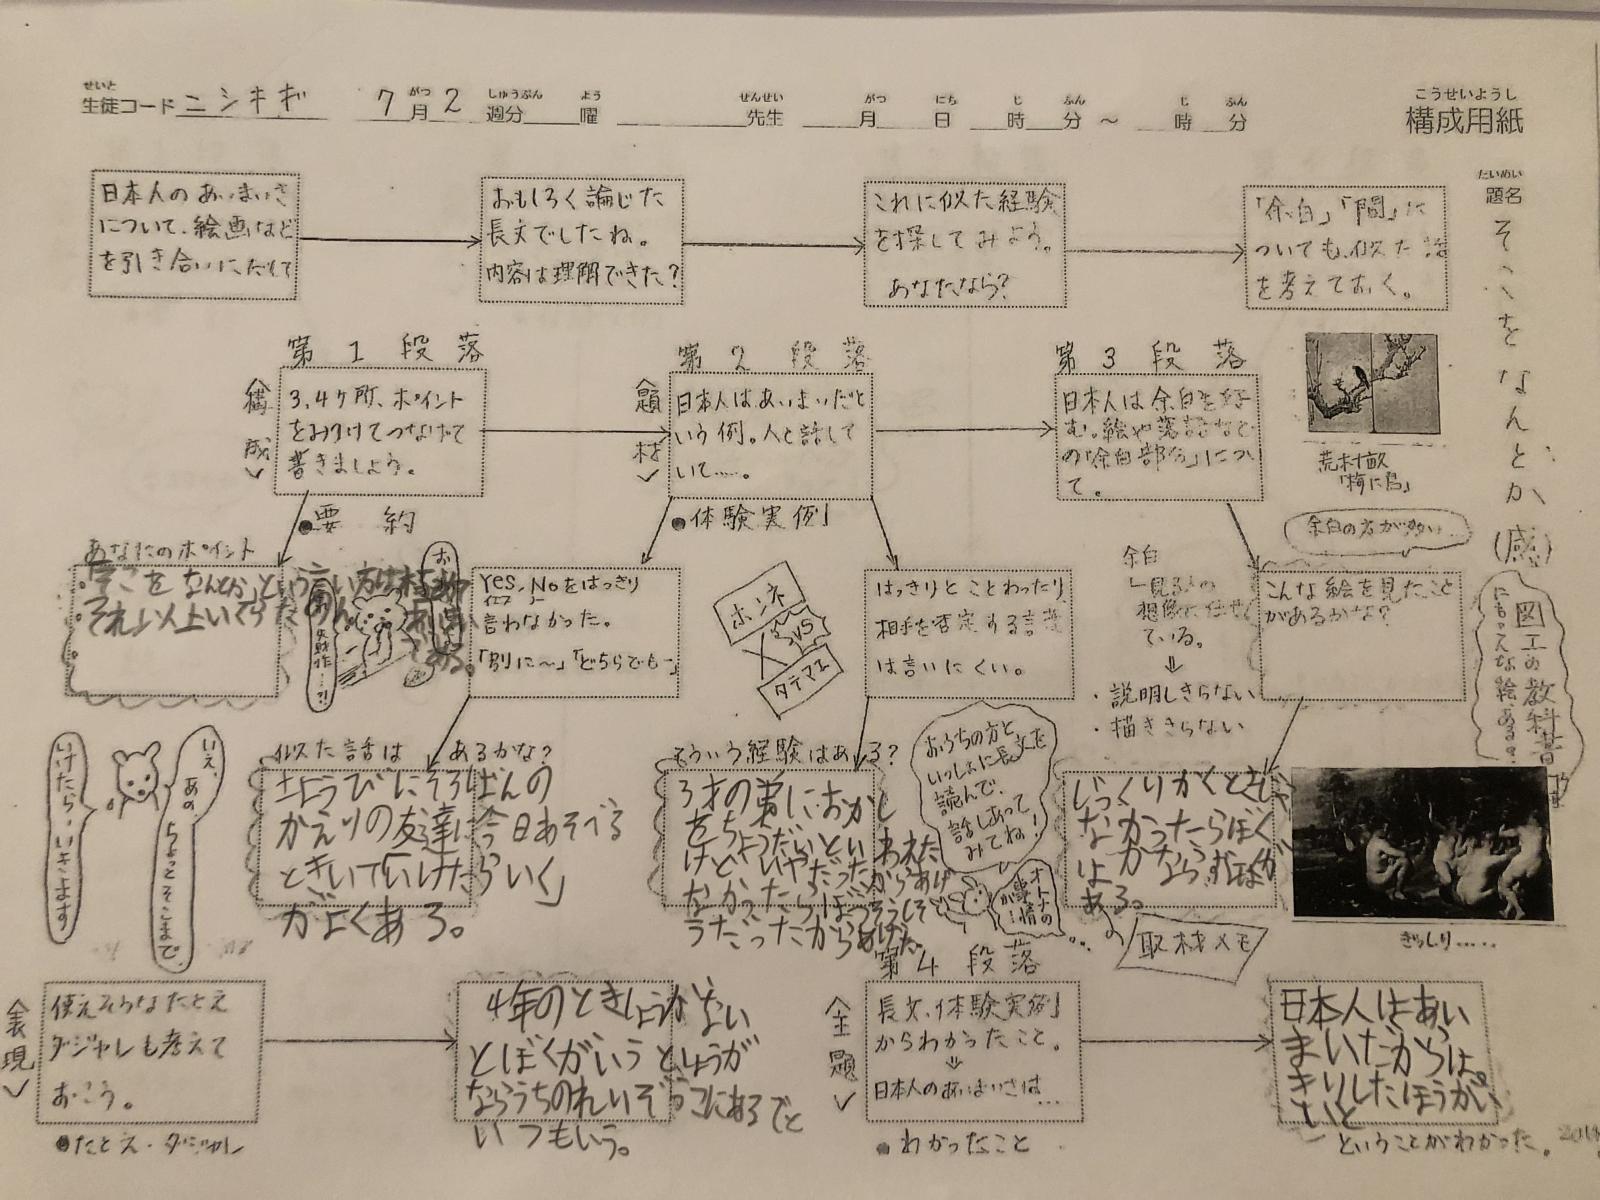 せいと
生徒コード ニシキギ 7 がつ 月 2 しゅうぶん 週分 よう 曜 せんせい 先生 がつ 月 にち 日 じ 時 ふん 分 ～ じ 時 ふん 分
こうせいようし
構成用紙
だいめい
題名
そこをなんとか(感)
日本人のあいまいさ
について、絵画など
を引き合いにだして
おもしろく論じた
長文でしたね。
内容は理解できた？
これに似た経験
を探してみよう。
あなたなら？
「余白」「間」に
ついても、似た話
を考えておく。
第1段落
〈構成〉
3、4ヶ所、ポイント
をみつけてつなげて
書きましょう。
第2段落
〈題材〉
日本人はあいまいだと
いう例。人と話して
いて……。
第3段落
日本人は余白を好
む。絵や落語など
の「余白部分」につい
て。
荒村畝
「梅に鳥」
余白の方が多い…
●要約
あなたのポイント
「そこをなんとか」という言い方は
それ以上いくら
失敗作…?!
●体験実例
Yes, Noをはっきり
イエス ノー
言わなかった。
「別に〜」「どちらでも…」
ホンネ
VS
タテマエ
はっきりとことわったり、
相手を否定する言葉
は言いにくい。
余白
見る人の
想像に任せ
ている。
⇓
・説明しきらない
・描ききらない
こんな絵を見たこと
があるかな？
図工の教科書
にもこんな絵、ある？
いえ、あの、ちょっとそこまで。
いけたら、いきます
似た話は あるかな？
土ようびにそろばんの
かえりの友達に今日あそべる
ときいて「いけたらいく」
がよくある。
そういう経験はある？
3才の弟におかし
をちょうだいといわれた
けどいやだったからあげ
なかったらぼうそうしそ
うだったからあげた。
おうちの方と
いっしょに長文を
読んで、
話しあって
みてね！
オトナの
事情
が…！
じっくりかくとき
なかったらぼく
はかならず
ある。
取材メモ
ぎっしり……
〈表現〉
使えそうなたとえ
ダジャレも考えて
おこう。
●たとえ・ダジャレ
4年のときしょうがない
とぼくがいうとしょうが
ならうちのれいぞうこにあるでと
いつもいう。
第4段落
〈主題〉
長文、体験実例
からわかったこと。
⇓
日本人のあいまいさは…
●わかったこと
日本人はあい
まいだからは。
きりしたほうがい
いと
ということがわかった。